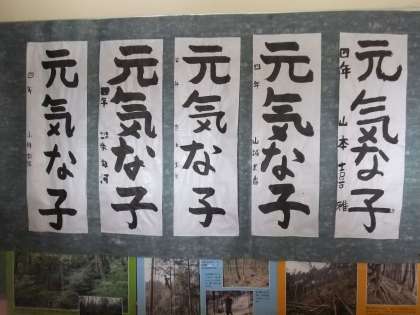 元気な子
四年 山本
元気な子
四年
元気な子
元気な子
四年
元気な子
四年